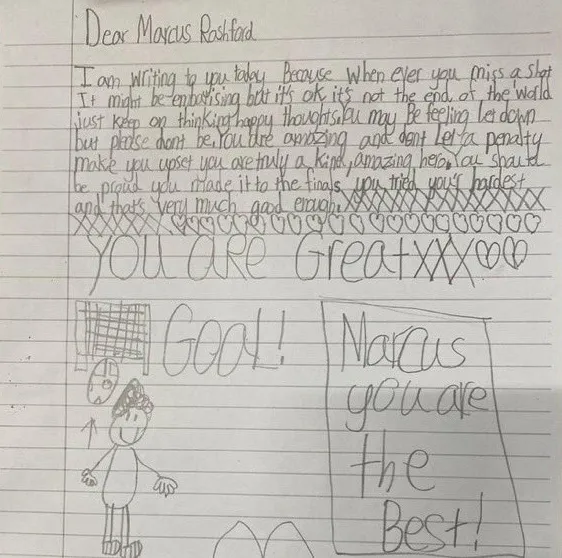 Dear Marcus Rashford
I am writing to you today Because when ever you miss a shot
It might be embarising but it's ok it's not the end of the world
just keep on thinking happy thoughts. You may be feeling let down
but please dont be. You are amazing and dont let a penalty
make you upset you are truly a kind, amazing hero. You should
be proud you made it to the finals you tried your's hardest
and that's very much good enough. XXXXXXXXXXXXXXX
XXXXXXX
you are Great XXX
GOal!
Marcus
you are
the
Best!